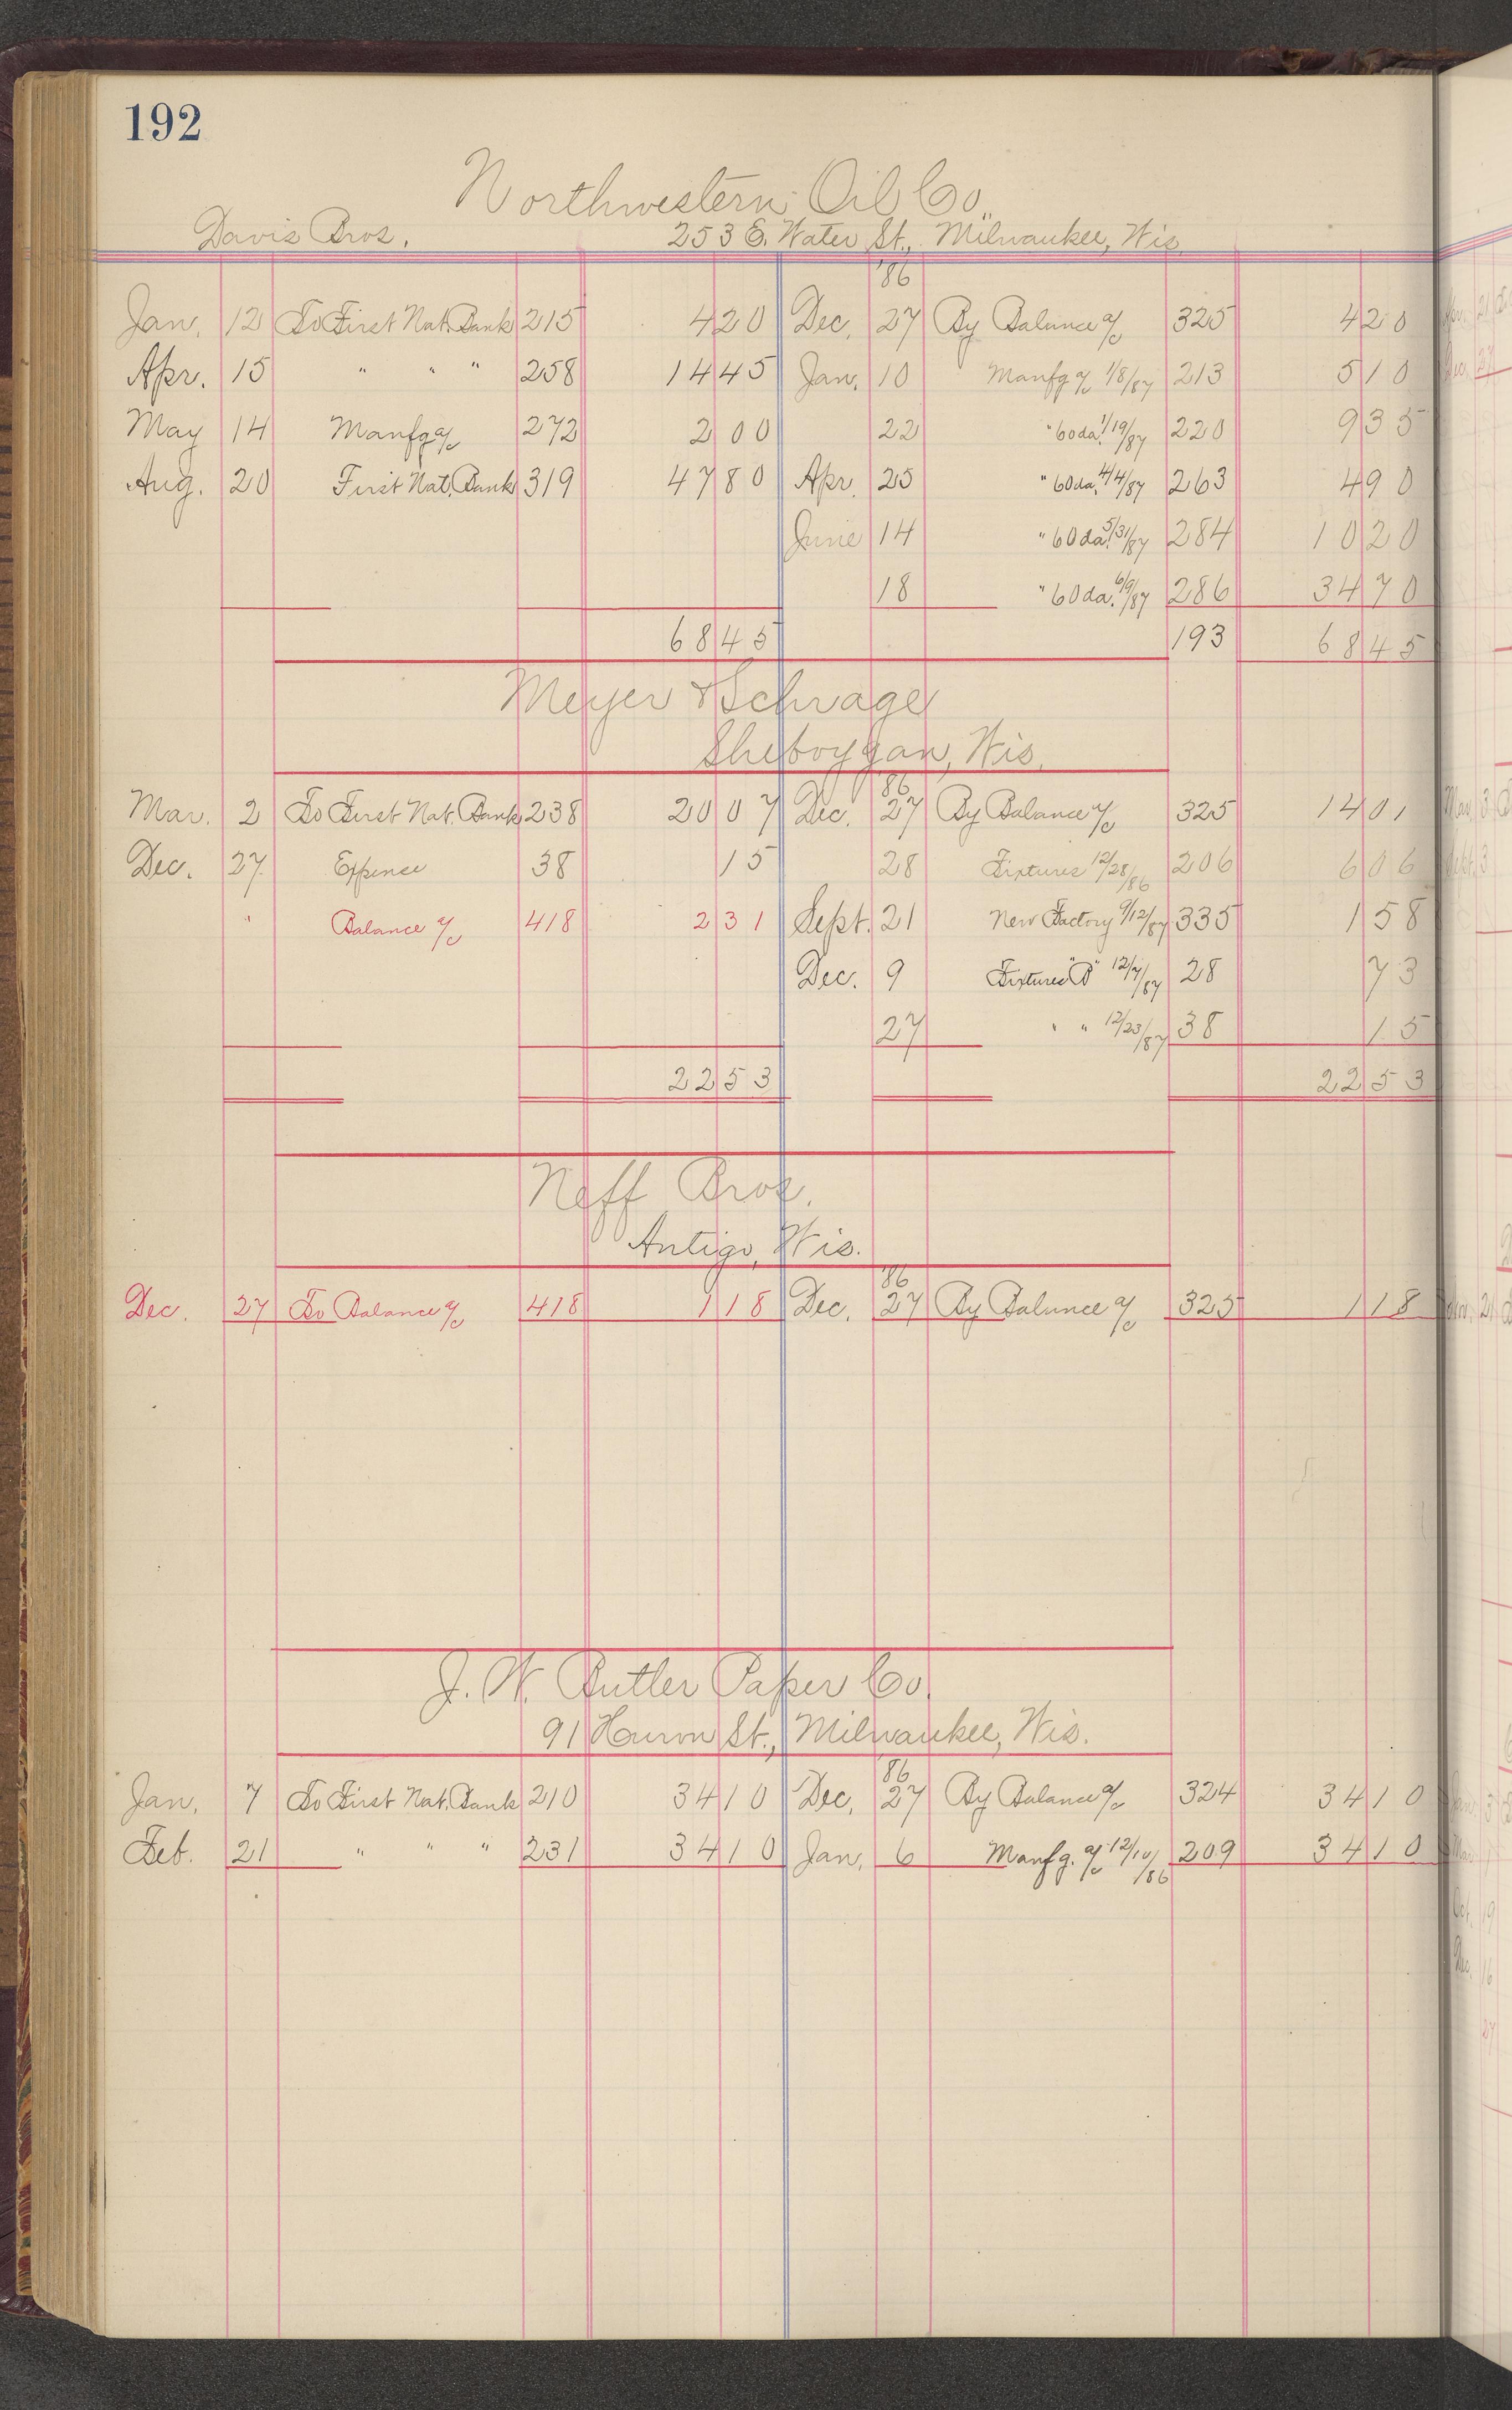 192
Northwestern Oil Co.
Davis Bros. 253 E. Water St., Milwaukee, Wis.
'86
Jan. 12 To First Nat. Bank 215 4 20 Dec. 27 By Balance a/c 325 4 20
Apr. 15 " " " 258 14 45 Jan. 10 Manfg a/c 1/8/87 213 5 10
May 14 Manfg a/c 272 2 00 22 " 60 da. 1/19/87 220 9 35
Aug. 20 First Nat. Bank 319 47 80 Apr. 25 " 60 da. 4/4/87 263 4 90
June 14 " 60 da. 5/31/87 284 10 20
18 " 60 da. 6/9/87 286 34 70
68 45 193 68 45
Meyer & Schrage
Sheboygan, Wis.
'86
Mar. 2 To First Nat. Bank 238 20 07 Dec. 27 By Balance a/c 325 14 01
Dec. 27 Expense 38 15 28 Fixtures 12/28/86 206 6 06
" Balance a/c 418 2 31 Sept. 21 New Factory 9/12/87 335 1 58
Dec. 9 Fixtures "B" 12/7/87 28 73
27 " " 12/23/87 38 15
22 53 22 53
Neff Bros.
Antigo, Wis.
'86
Dec. 27 To Balance a/c 418 1 18 Dec. 27 By Balance a/c 325 1 18
J. W. Butler Paper Co.
91 Huron St., Milwaukee, Wis.
'86
Jan. 7 To First Nat. Bank 210 34 10 Dec. 27 By Balance a/c 324 34 10
Feb. 21 " " " 231 34 10 Jan. 6 Manfg. a/c 12/10/86 209 34 10